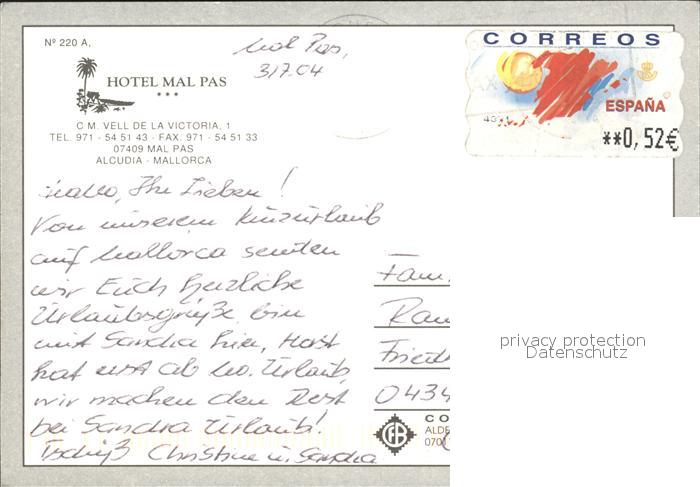 Nº 220 A,
Mal Pas,
3/7.04
CORREOS
ESPAÑA
**0,52€
HOTEL MAL PAS
C M. VELL DE LA VICTORIA, 1
TEL. 971 - 54 51 43 - FAX. 971 - 54 51 33
07409 MAL PAS
ALCUDIA - MALLORCA
Hallo, Ihr Lieben!
Von unserem Kurzurlaub
auf Mallorca senden
wir Euch herzliche
Urlaubsgrüße bin
mit Sandra hier, Horst
hat erst ab Urlaub,
wir machen den Rest
bei Sandra Urlaub!
Tschüß Christine u. Sandra
Fam.
Ran
Friedr
0434
CO
ALDE
0701
privacy protection
Datenschutz